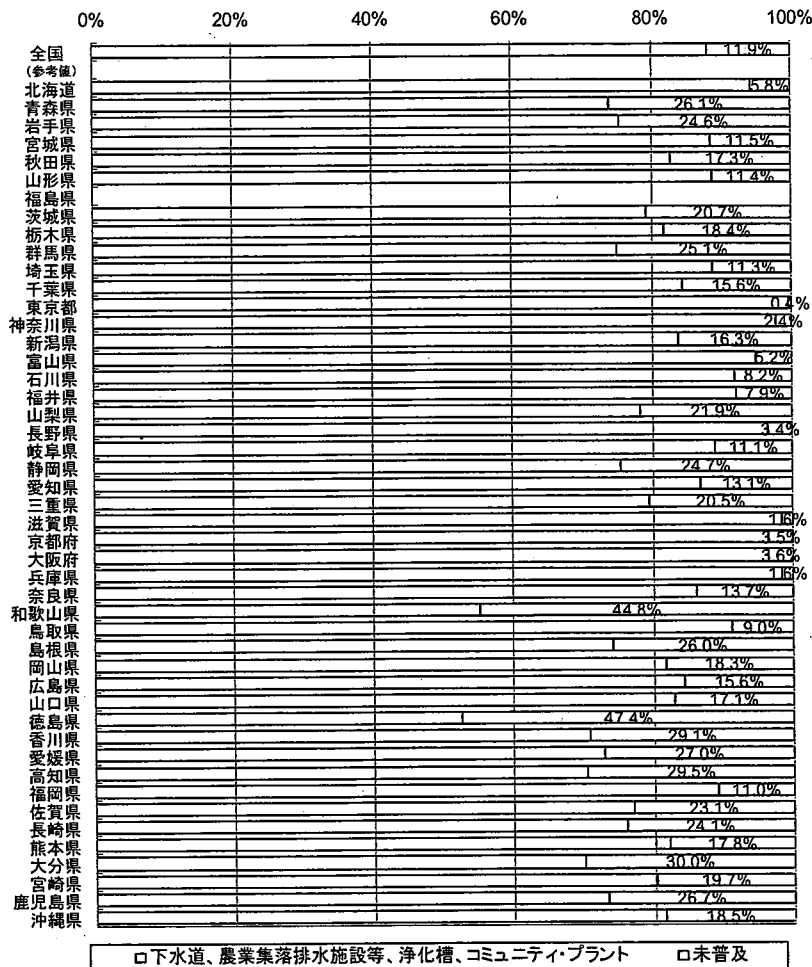 0% 20% 40% 60% 80% 100%
全国 11.9%
(参考値)
北海道 5.8%
青森県 26.1%
岩手県 24.6%
宮城県 11.5%
秋田県 17.3%
山形県 11.4%
福島県
茨城県 20.7%
栃木県 18.4%
群馬県 25.1%
埼玉県 11.3%
千葉県 15.6%
東京都 0.4%
神奈川県 2.4%
新潟県 16.3%
富山県 5.2%
石川県 8.2%
福井県 7.9%
山梨県 21.9%
長野県 3.4%
岐阜県 11.1%
静岡県 24.7%
愛知県 13.1%
三重県 20.5%
滋賀県 1.6%
京都府 3.5%
大阪府 3.6%
兵庫県 1.6%
奈良県 13.7%
和歌山県 44.8%
鳥取県 9.0%
島根県 26.0%
岡山県 18.3%
広島県 15.6%
山口県 17.1%
徳島県 47.4%
香川県 29.1%
愛媛県 27.0%
高知県 29.5%
福岡県 11.0%
佐賀県 23.1%
長崎県 24.1%
熊本県 17.8%
大分県 30.0%
宮崎県 19.7%
鹿児島県 26.7%
沖縄県 18.5%
□下水道、農業集落排水施設等、浄化槽、コミュニティ・プラント □未普及